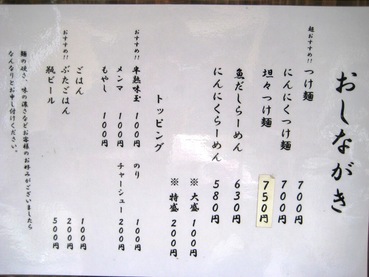 おしながき
超おすすめ!!
つけ麺 700円
にんにくつけ麺 700円
坦々つけ麺 750円
魚だしらーめん 630円
にんにくらーめん 580円
※大盛 100円
※特盛 200円
トッピング
おすすめ!!
半熟味玉 100円
のり 100円
メンマ 100円
チャーシュー 200円
もやし 100円
ごはん 100円
おすすめ!!
ぶたごはん 200円
瓶ビール 500円
麺の硬さ、味の濃さなどお客様のお好みがございましたら
なんなりとお申し付けください。